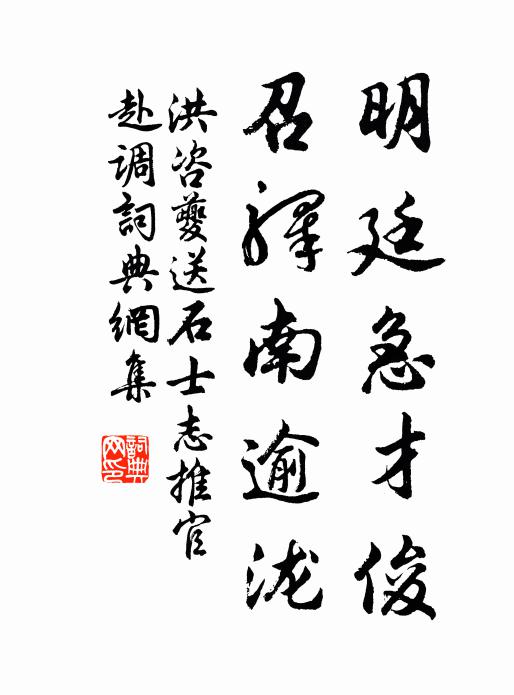 明廷急才俊
召驛南逾瀧
洪咨夔送石士志推官
赴調詞典網集
詞典网印